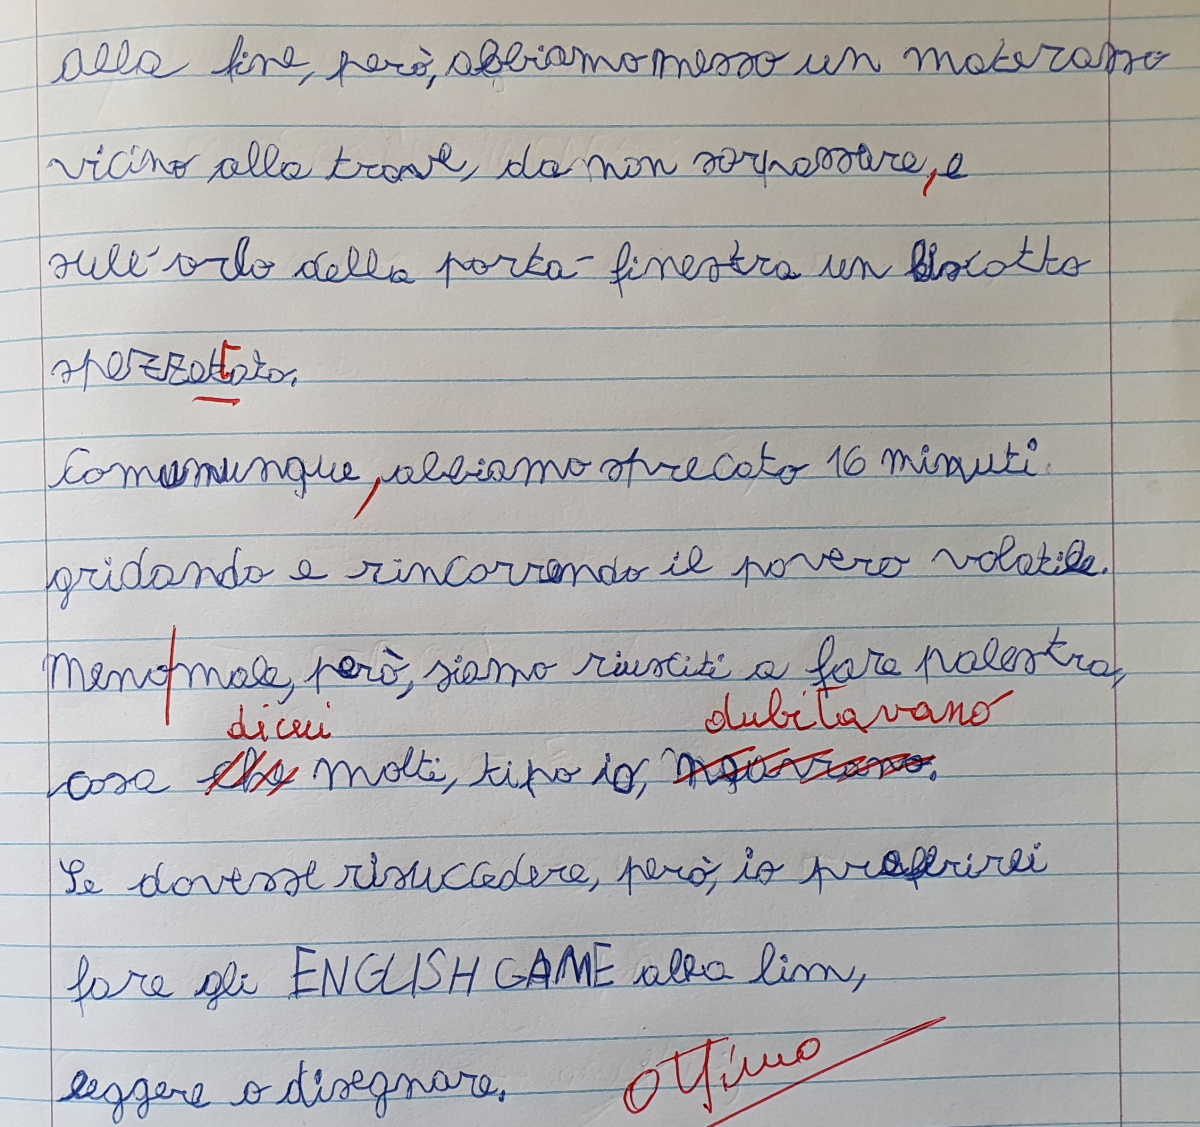 alla fine, però, abbiamo messo un materasso
vicino alla trave, da non sorpassare, e
sull'orlo della porta-finestra un biscotto
spezzettato.
Comunque, abbiamo sprecato 16 minuti
gridando e rincorrendo il povero volatile.
Meno male, però, siamo riusciti a fare palestra,
di cui dubitavano
cosa che molti, tipo io,
Se dovesse risuccedere, però, io preferirei
fare gli ENGLISH GAME alla lim,
leggere o disegnare.
Ottimo